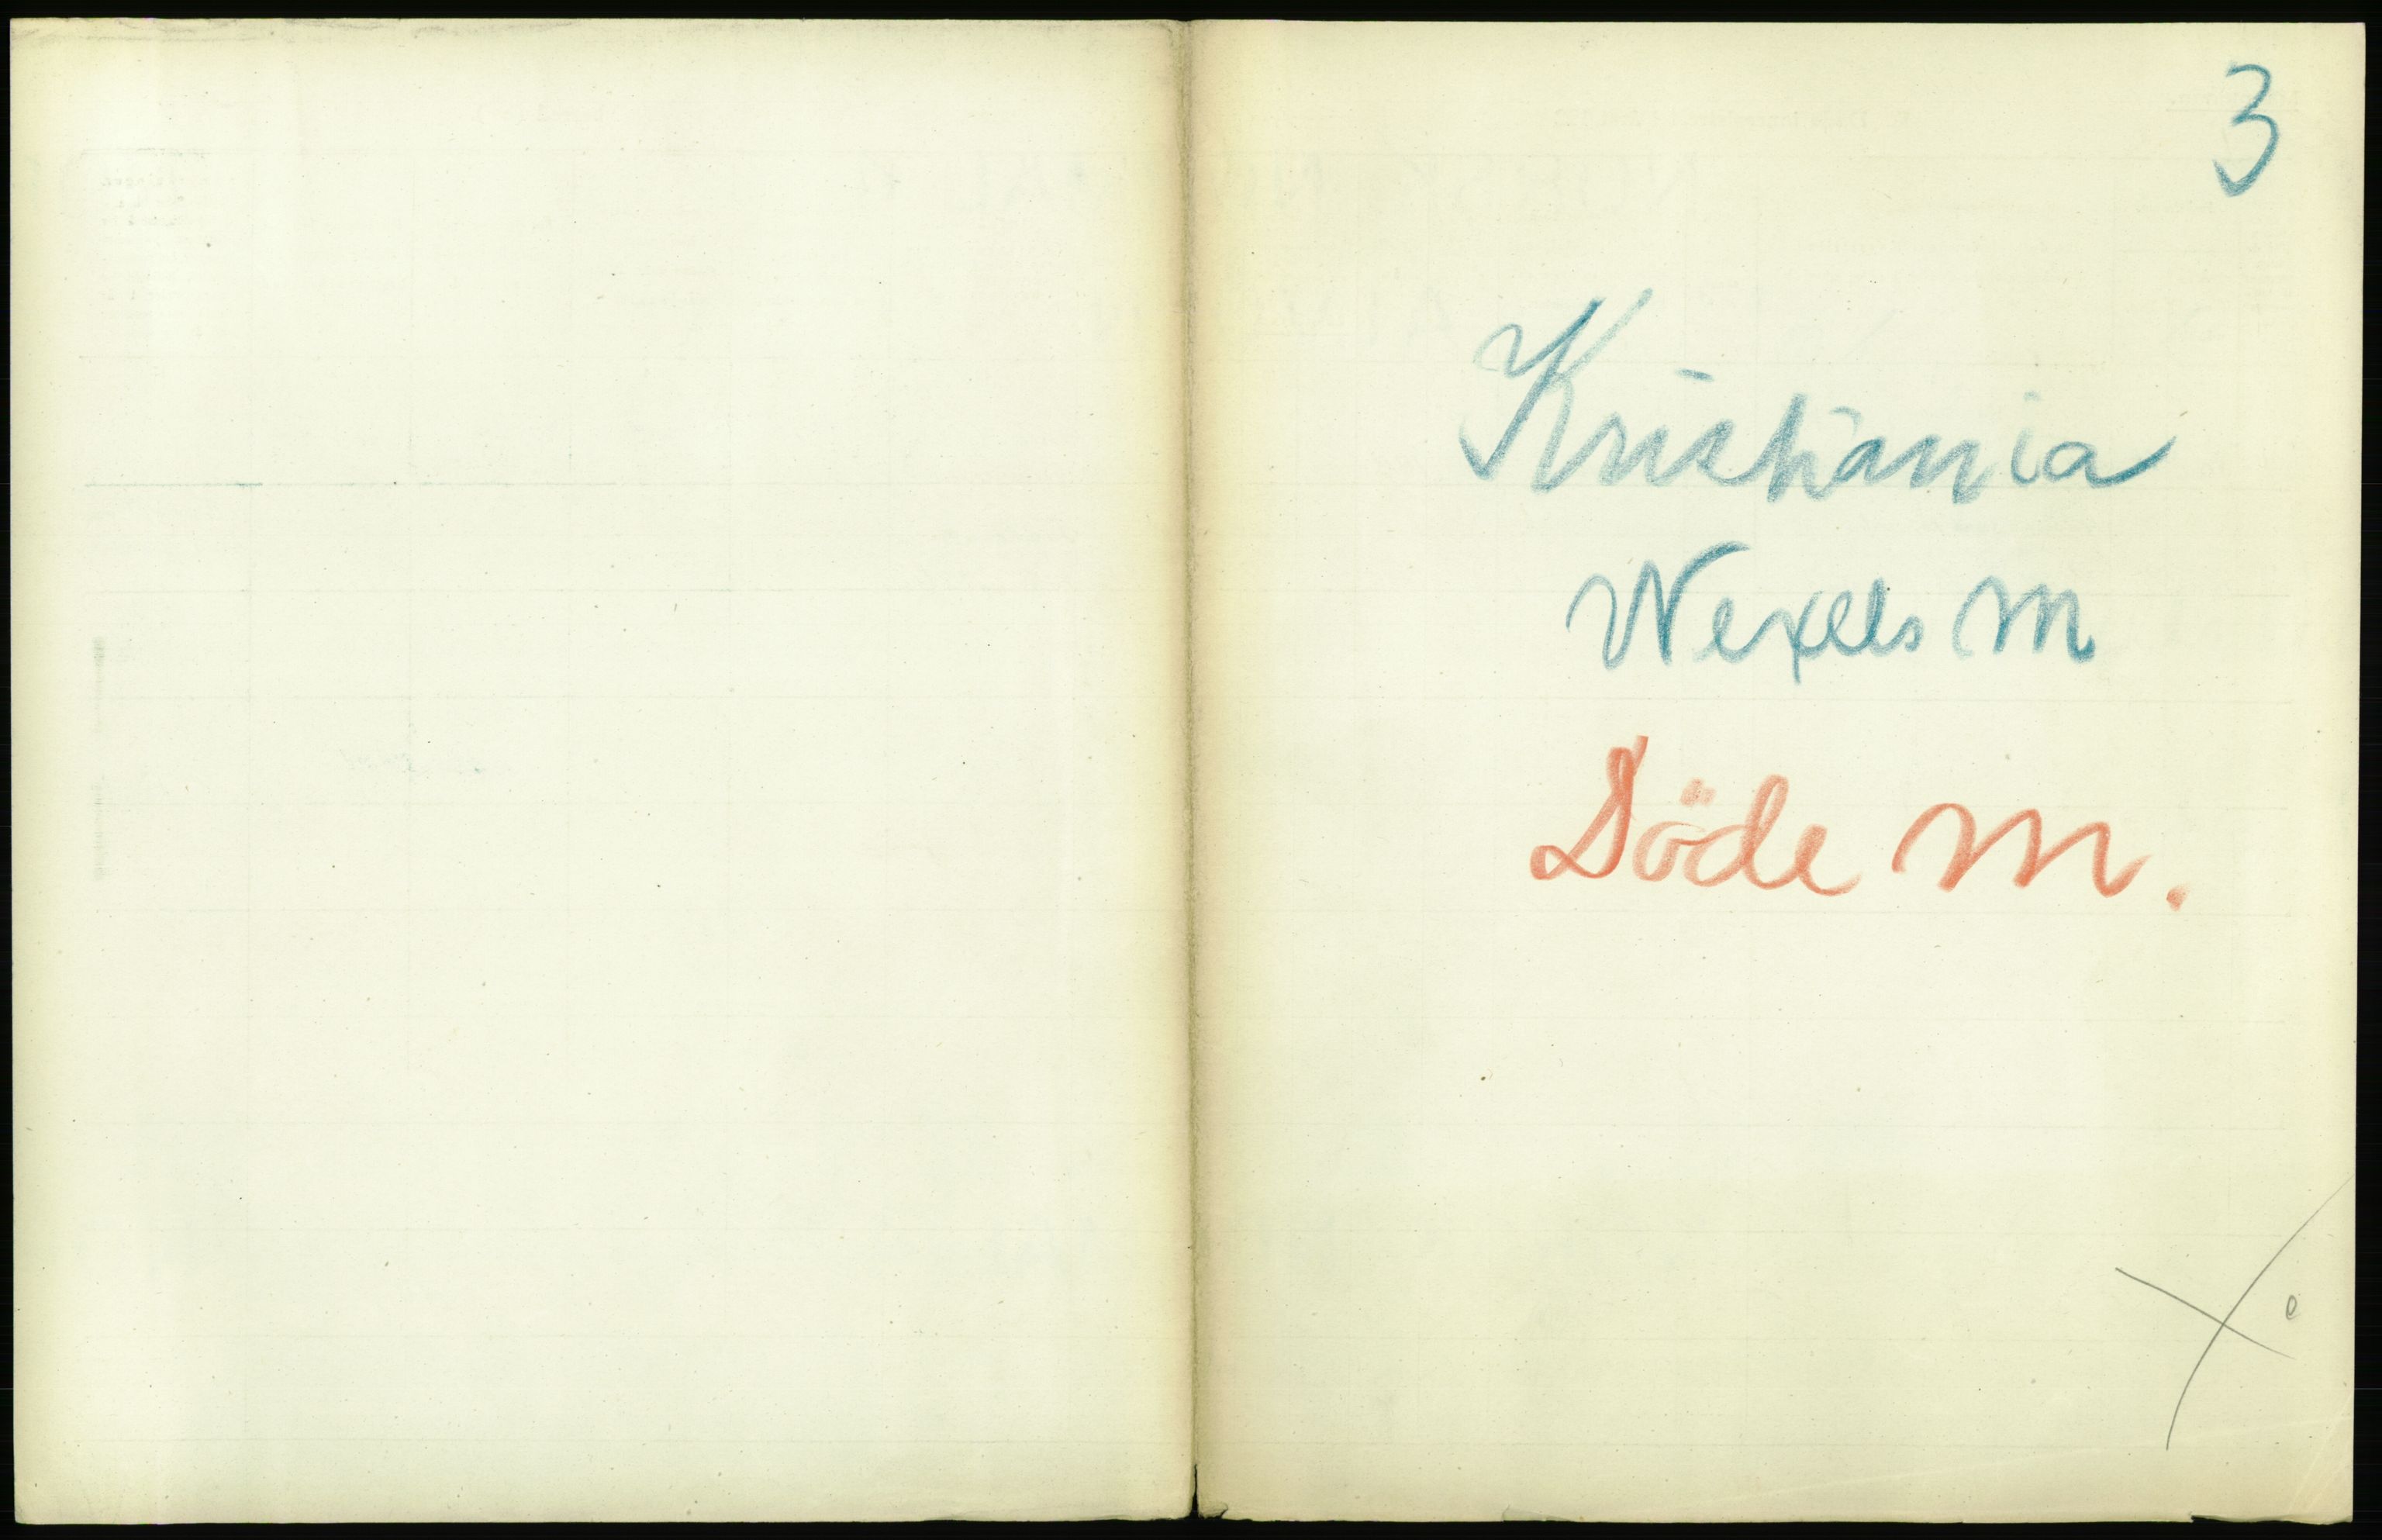 3
Kristiania
Wexels M
Döde M.